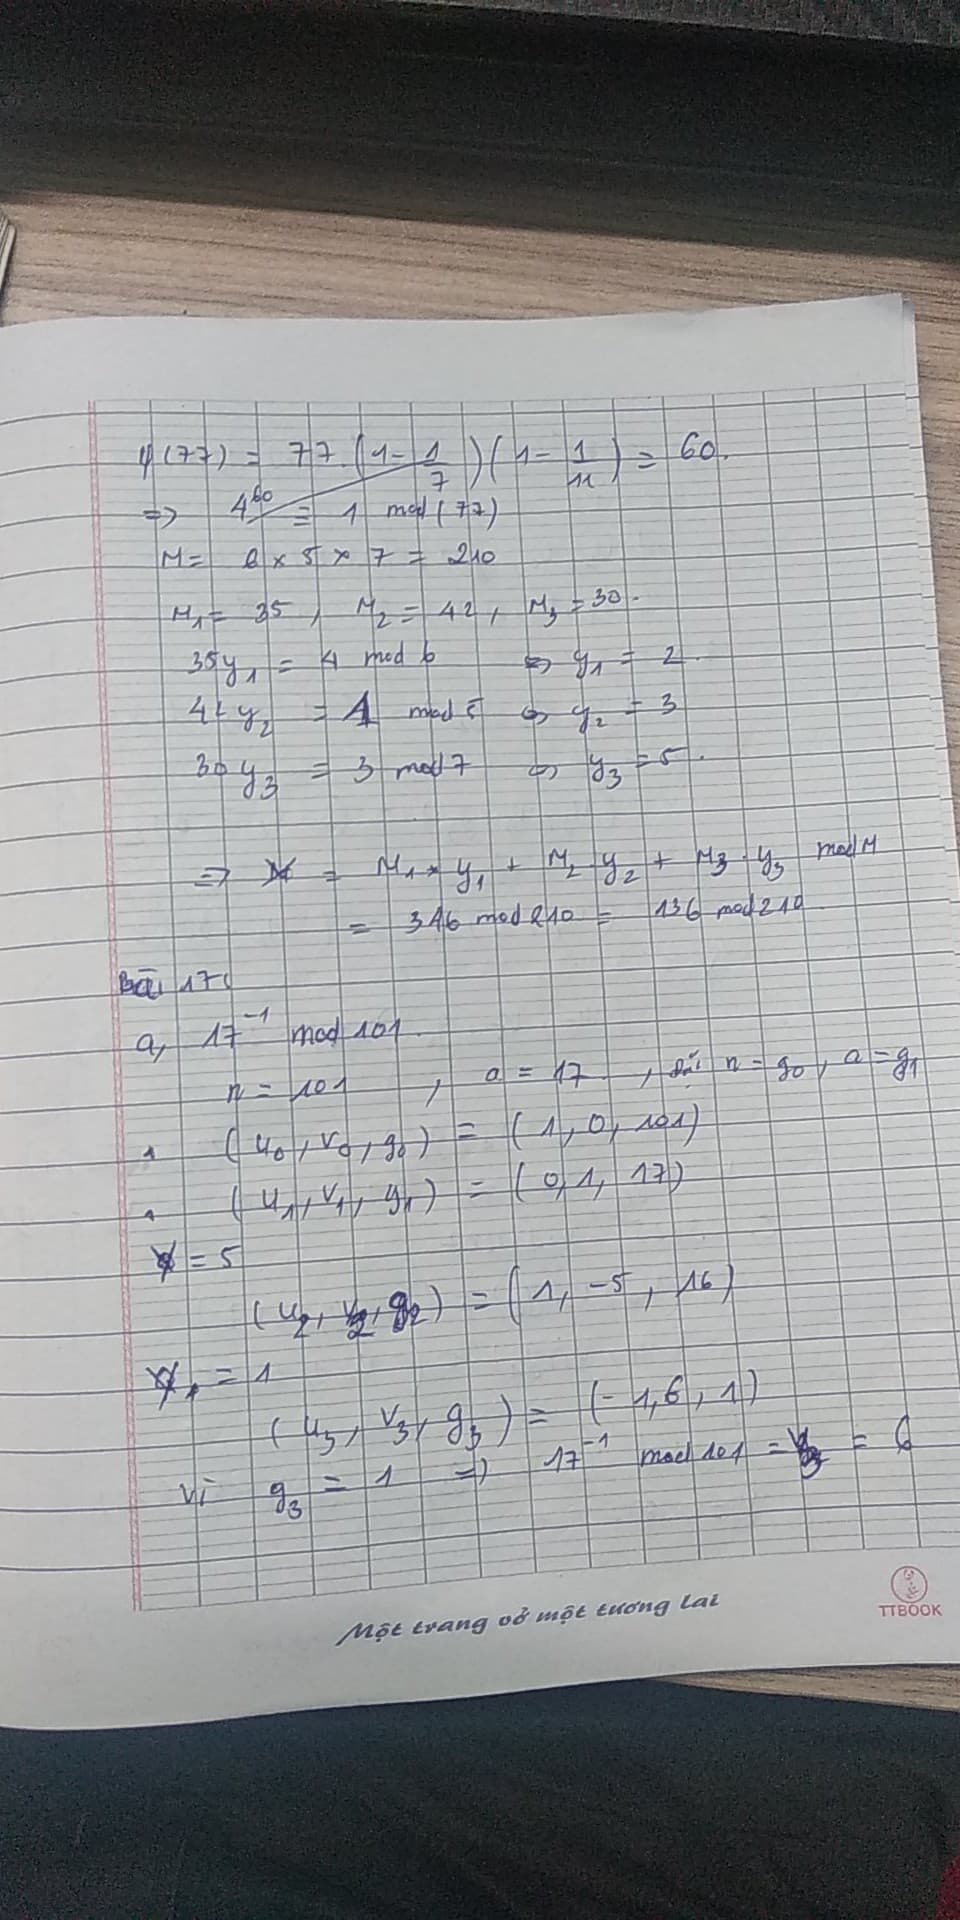 φ(77) = 77.(1 - 1/7)(1 - 1/11) = 60.
=> 4^60 ≡ 1 mod (77)
M = 6 x 5 x 7 = 210
M1 = 35, M2 = 42, M3 = 30.
35y1 = 4 mod 6 <=> y1 = 2.
42 y2 = 1 mod 5 <=> y2 = 3
30 y3 = 3 mod 7 <=> y3 = 5.
=> X = M1 * y1 + M2 y2 + M3 . y3 mod M
= 346 mod 210 = 136 mod 210
Bài 17:
a, 17^-1 mod 101.
n = 101, a = 17, đặt n = g0, a = g1
(u0, v0, g0) = (1, 0, 101)
(u1, v1, g1) = (0, 1, 17)
y = 5
(u2, v2, g2) = (1, -5, 16)
= 1
(u3, v3, g3) = (-1, 6, 1)
Vì g3 = 1 => 17^-1 mod 101 = v3 = 6
Một trang vở một tương lai
TTBOOK